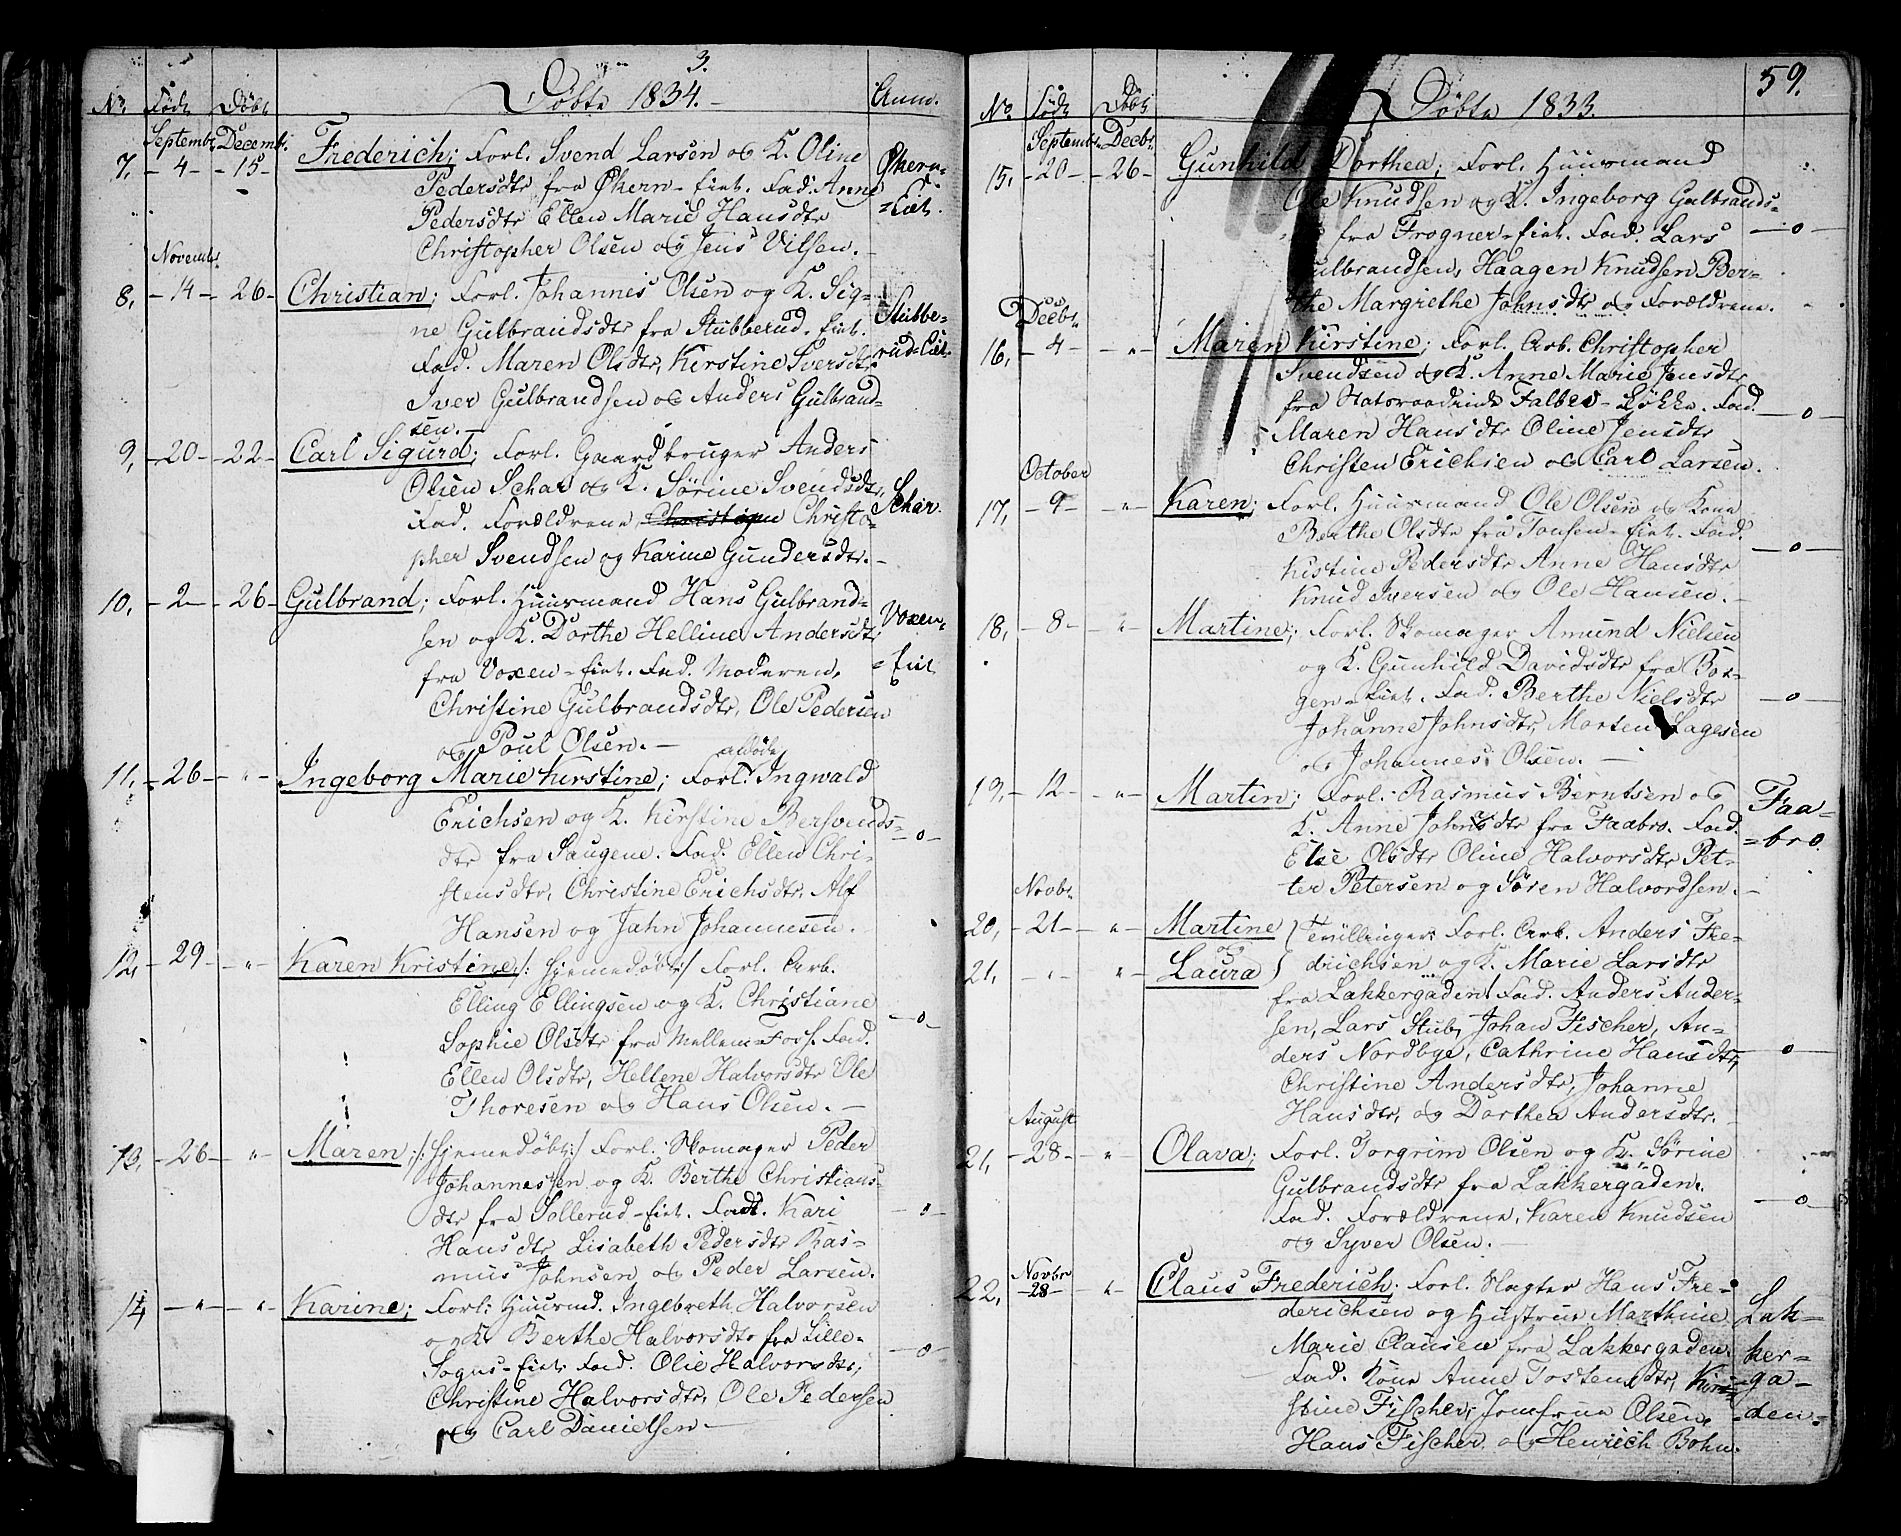 3.
Døbte 1834.-
No. Født Døbt Anm.
Septembr. Decembr.
7, -4- -15- Frederich; Forl. Svend Larsen og K. Oline Økern-
Pedersdtr fra Økern-Eiet. Fad. Anne =Eiet.
Pedersdtr Ellen Marie Hansdtr
Christopher Olsen og Jens Nilsen.-
November
8, -14- -26- Christian; Forl. Johannes Olsen og K. Sig-
ne Gulbrandsdtr fra Stubberud-Eiet. Stubbe-
Fad. Maren Olsdtr, Kirstine Iversdtr, rud-Eiet.
Iver Gulbrandsen og Anders Gulbrand-
sen.-
9, -20- -22- Carl Sigurd; Forl. Gaardbruger Anders
Olsen Schar og K. Sørine Svendsdtr, Schar.
Fad. Forældrene, Christo-
pher Svendsen og Karine Gundersdtr.-
10, -2- -26- Gulbrand; Forl. Huusmand Hans Gulbrand-
sen og K. Dorthe Helline Andersdtr Voxen-
fra Voxen-Eiet. Fad. Moderen, =Eiet
Christine Gulbrandsdtr, Ole Pedersen
og Poul Olsen.-
11, -26- -"- Ingeborg Marie Kirstine; Forl. Ingwald
Erichsen og K. Kirstine Bersvends- -o-
dtr fra Saugene. Fad. Ellen Chri-
stensdtr, Christine Erichsdtr, Alf
Hansen og Jahn Johannesen.
12, -29- -"- Karen Kristine /: Hjemmedøbt :/ Forl. Arb.
Elling Ellingsen og K. Christiane
Sophie Olsdtr fra Mellem-Foss. Fad. -o-
Ellen Olsdtr, Hellene Halvorsdtr Ole
Thoresen og Hans Olsen.-
13, -26- -"- Maren; /: Hjemedøbt :/ Forl: Skomager Peder
Johannessen og K. Berthe Christians-
dtr fra Sollerud-Eiet. Fad. Kari -o-
Hansdtr Lisabeth Pedersdtr Ras-
mus Johnsen og Peder Larsen.
14 -"- -"- Karine; Forl: Huusmd. Ingebreth Halvorsen
og K. Berthe Halvorsdtr fra Lille- -o-
Sogns-Eiet. Fad. Olie Halvorsdtr,
Christine Halvorsdtr, Ole Pedersen
og Carl Danielsen-
59.
Døbte 1833.
No. Født Døbt
Septembr. Decbr.
15, -20- -26- Gunhild Dorthea; Forl. Huusmand
Ole Knudsen og K. Ingeborg Gulbrands-
fra Frogner-Eiet. Fad. Lars -o-
Gulbrandsen, Haagen Knudsen Ber-
the Margrethe Johnsdtr og Forældrene.
Decbr.
16, -4- -"- Maren Kirstine; Forl. Arb. Christopher
Svendsen og K. Anne Marie Jensdtr
fra Statsraadinde Falbes-Løkke. Fad. -o-
Maren Hansdtr Oline Jensdtr
Christen Erichsen og Carl Larsen.
October
17, -9- -"- Karen; Forl. Huusmand Ole Olsen og Kone
Berthe Olsdtr fra Tonsen-Eiet. Fad. -o-
Kistine Pedersdtr Anne Hansdtr
Knud Iversen og Ole Hansen.-
18, -8- -"- Martine; Forl. Skomager Amund Nielsen
og K. Gunhild Davidsdtr fra Bor-
gen-Eiet. Fad. Berthe Nielsdtr -o-
Johanne Johnsdtr, Morten Lagesen
og Johannes Olsen.-
19, -12- -"- Martin; Forl. Rasmus Berntsen og Faa-
K. Anne Johnsdtr fra Faabro. Fad. =bro.
Else Olsdtr Oline Halvorsdtr Pet-
ter Petersen og Søren Halvordsen.-
Novbr.
20, -21- -"- Martine } Tvillinger: Forl. Arb. Anders Fre-
og
21, -"- -"- Laura } drichsen og K. Marie Larsdtr
fra Lakkergaden. Fad. Anders Ander-
sen, Lars Stub, Johan Fischer, An-
ders Nordbye, Cathrine Hansdtr, -o-
Christine Andersdtr, Johanne
Hansdtr, og Dorthea Andersdtr.
August
21, -28- -"- Olava; Forl. Torgrim Olsen og K. Sørine
Gulbrandsdtr fra Lakkergaden. -o-
Fad. Forældrene, Karen Knudsen
og Syver Olsen.-
Novbr
22, -28- -"- Claus Frederich; Forl. Slagter Hans Fre-
derichsen og Hustrue Marthine Lak-
Marie Clausen fra Lakkergaden. ker-
Fad. Kone Anne Tostensdtr, Kir- -ga-
stine Fischer, Jomfrue Olsen, -den-
Hans Fischer og Henrich Bohn.